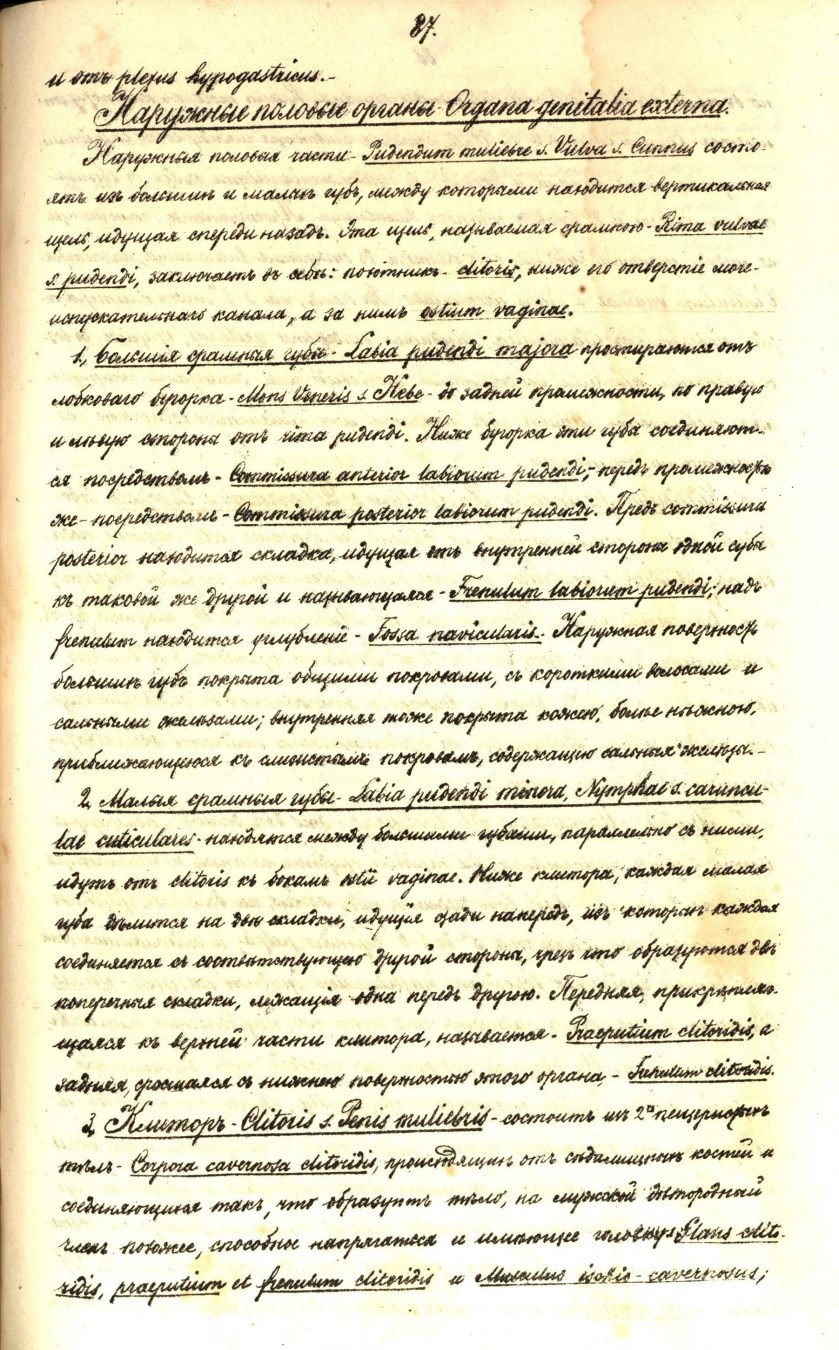 37.
и отъ plexus hypogastricus.-
Наружные половые органы- Organa genitalia externa.
Наружныя половыя части- Pudendum muliebre s. Vulva s. Cunnus состо-
ятъ изъ большихъ и малыхъ губъ, между которыми находится вертикальная
щель, идущая спереди назадъ. Эта щель, называемая срамною- Rima vulvae
s. pudendi, заключаетъ въ себѣ: похотникъ- clitoris, ниже его отверстіе моче-
испускательнаго канала, а за нимъ ostium vaginae.
1, Большія срамныя губы- Labia pudendi majora простираются отъ
лобковаго бугорка- Mons Veneris s. Hebe- до задней промежности, по правую
и лѣвую сторону отъ rima pudendi. Ниже бугорка эти губы соединяют-
ся посредствомъ- Commissura anterior labiorum pudendi;- передъ промежностью
же- посредствомъ- Commissura posterior labiorum pudendi. Предъ commissura
posterior находится складка, идущая отъ внутренней стороны одной губы
къ таковой же другой и называющаяся- Frenulum labiorum pudendi; надъ
frenulum находится углубленіе- Fossa navicularis.- Наружная поверхность
большихъ губъ покрыта общими покровами, съ короткими волосами и
сальными железами; внутренняя тоже покрыта кожею, болѣе нѣжною,
приближающеюся къ слизистымъ покровамъ, содержащею сальныя железы.-
2, Малыя срамныя губы- Labia pudendi minora, Nymphae s. caruncu-
lae cuticulares- находятся между большими губами, параллельно съ ними,
идутъ отъ clitoris къ бокамъ ostii vaginae. Ниже клитора, каждая малая
губа дѣлится на двѣ складки, идущія сзади напередъ, изъ которыхъ каждая
соединяется съ соотвѣтствующею другой стороны, чрезъ что образуются двѣ
поперечныя складки, лежащія одна передъ другою. Передняя, прикрѣпляю-
щаяся къ верхней части клитора, называется- Praeputium clitoridis, а
задняя, сросшаяся съ нижнею поверхностью этого органа,- Frenulum clitoridis.
3, Клиторъ- Clitoris s. Penis muliebris- состоитъ изъ 2хъ пещеристыхъ
тѣлъ- Corpora cavernosa clitoridis, происходящихъ отъ сѣдалищныхъ костей и
соединяющихся такъ, что образуютъ тѣло, на мужской дѣтородный
членъ похожее, способное напрягаться и имѣющее головку- Glans clito-
ridis, praeputium et frenulum clitoridis и Musculus ischio-cavernosus;